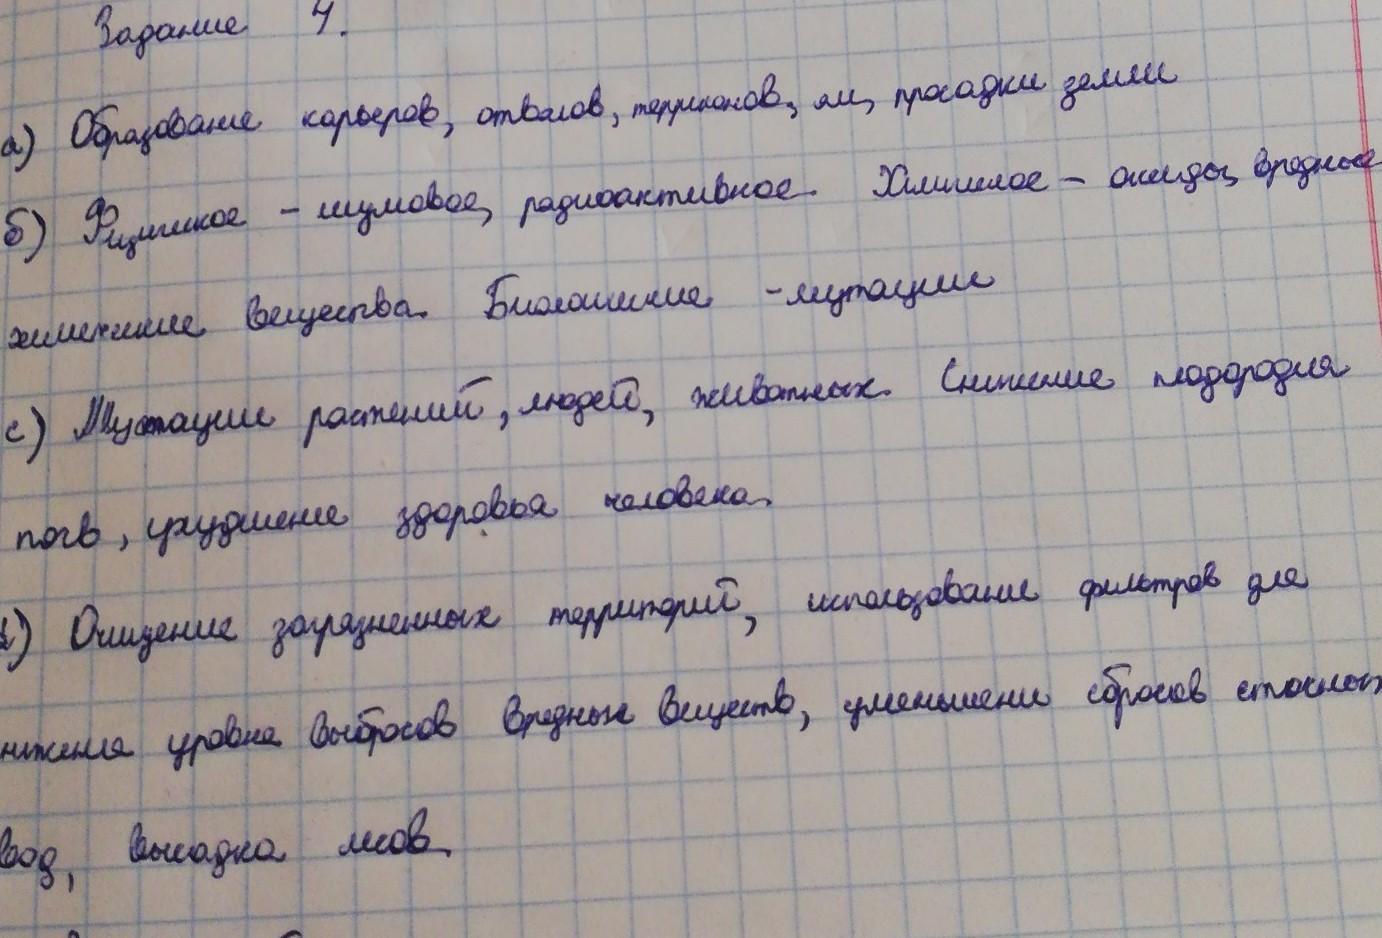 Задание 4.
а) Образование карьеров, отвалов, терриконов, ям, просадки земли
б) Физическое - шумовое, радиоактивное. Химическое - оксиды, вредные
химические вещества. Биологические - мутации
с) Мутации растений, людей, животных. Снижение плодородия
почв, ухудшение здоровья человека.
) Очищение загрязненных территорий, использование фильтров для
нижения уровня выбросов вредных веществ, уменьшени сбросов сточных
вод, высадка лесов.